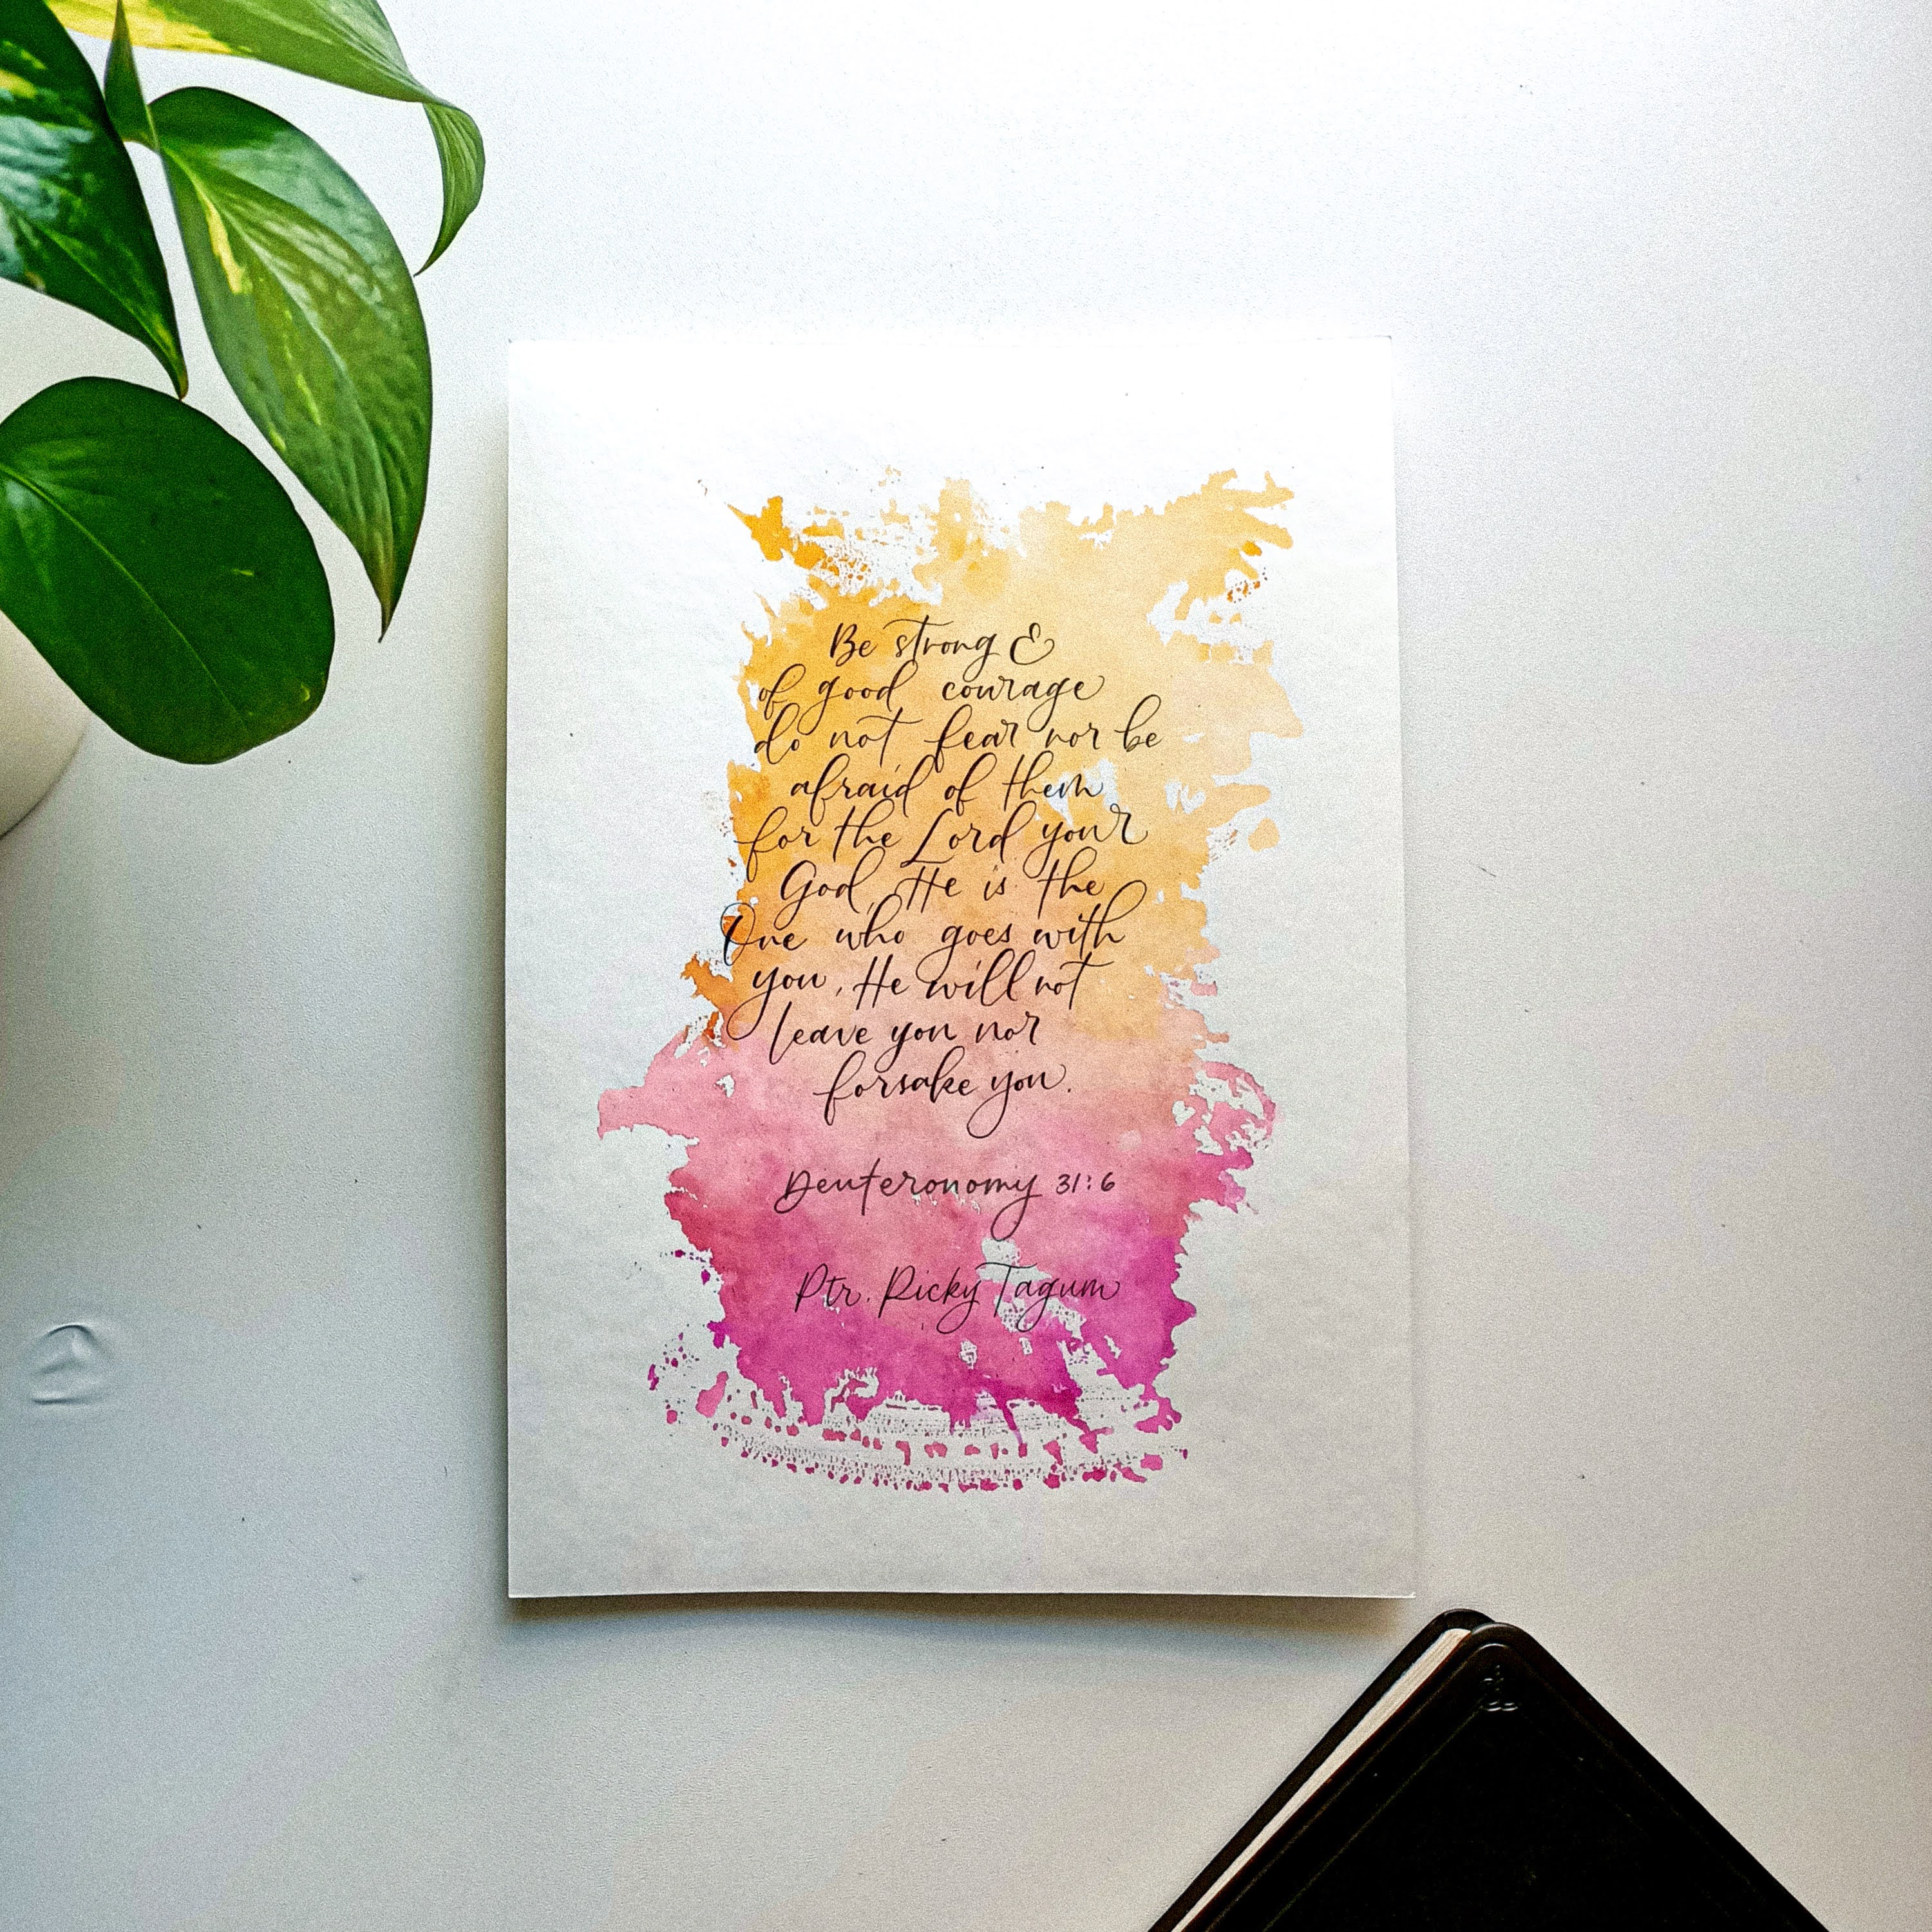 Be strong &
of good courage
do not fear nor be
afraid of them
for the Lord your
God, He is the
One who goes with
you, He will not
leave you nor
forsake you.
Deuteronomy 31:6
Ptr. Ricky Tagum